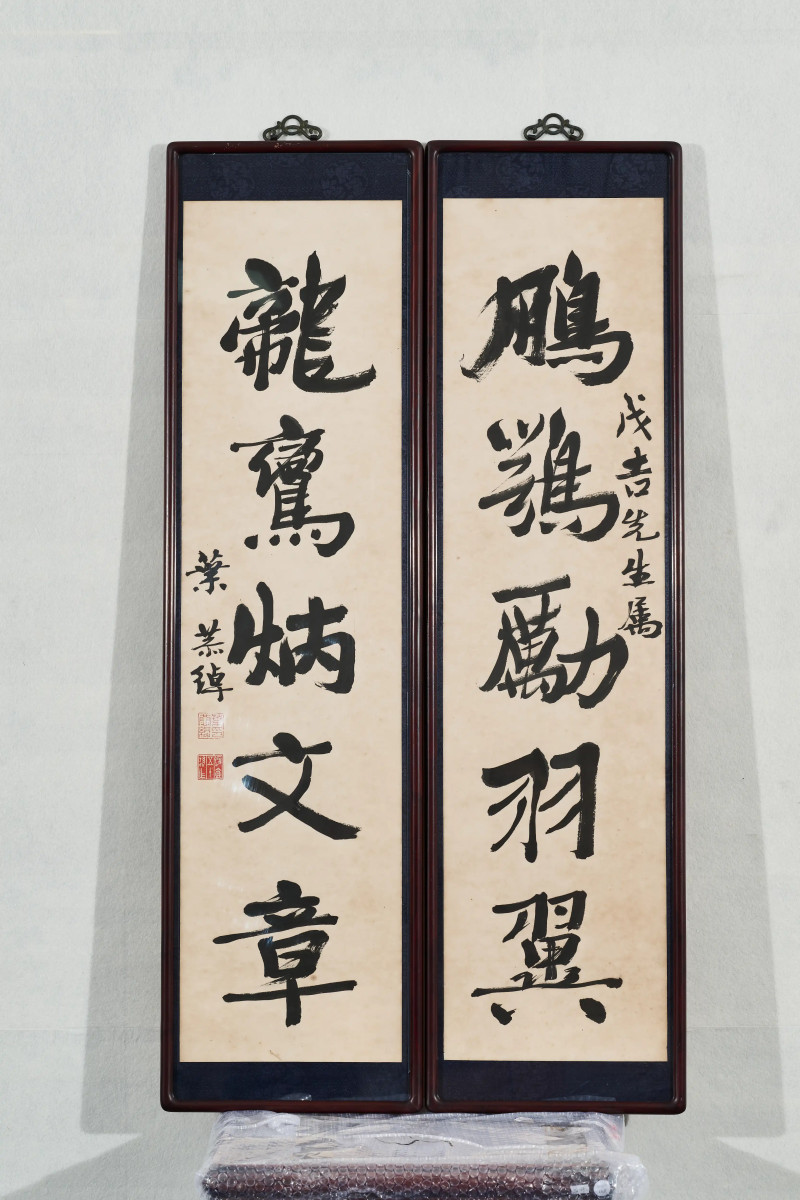 鵬鶚勵羽翼
戊吉先生属
龍鸞炳文章
葉恭綽